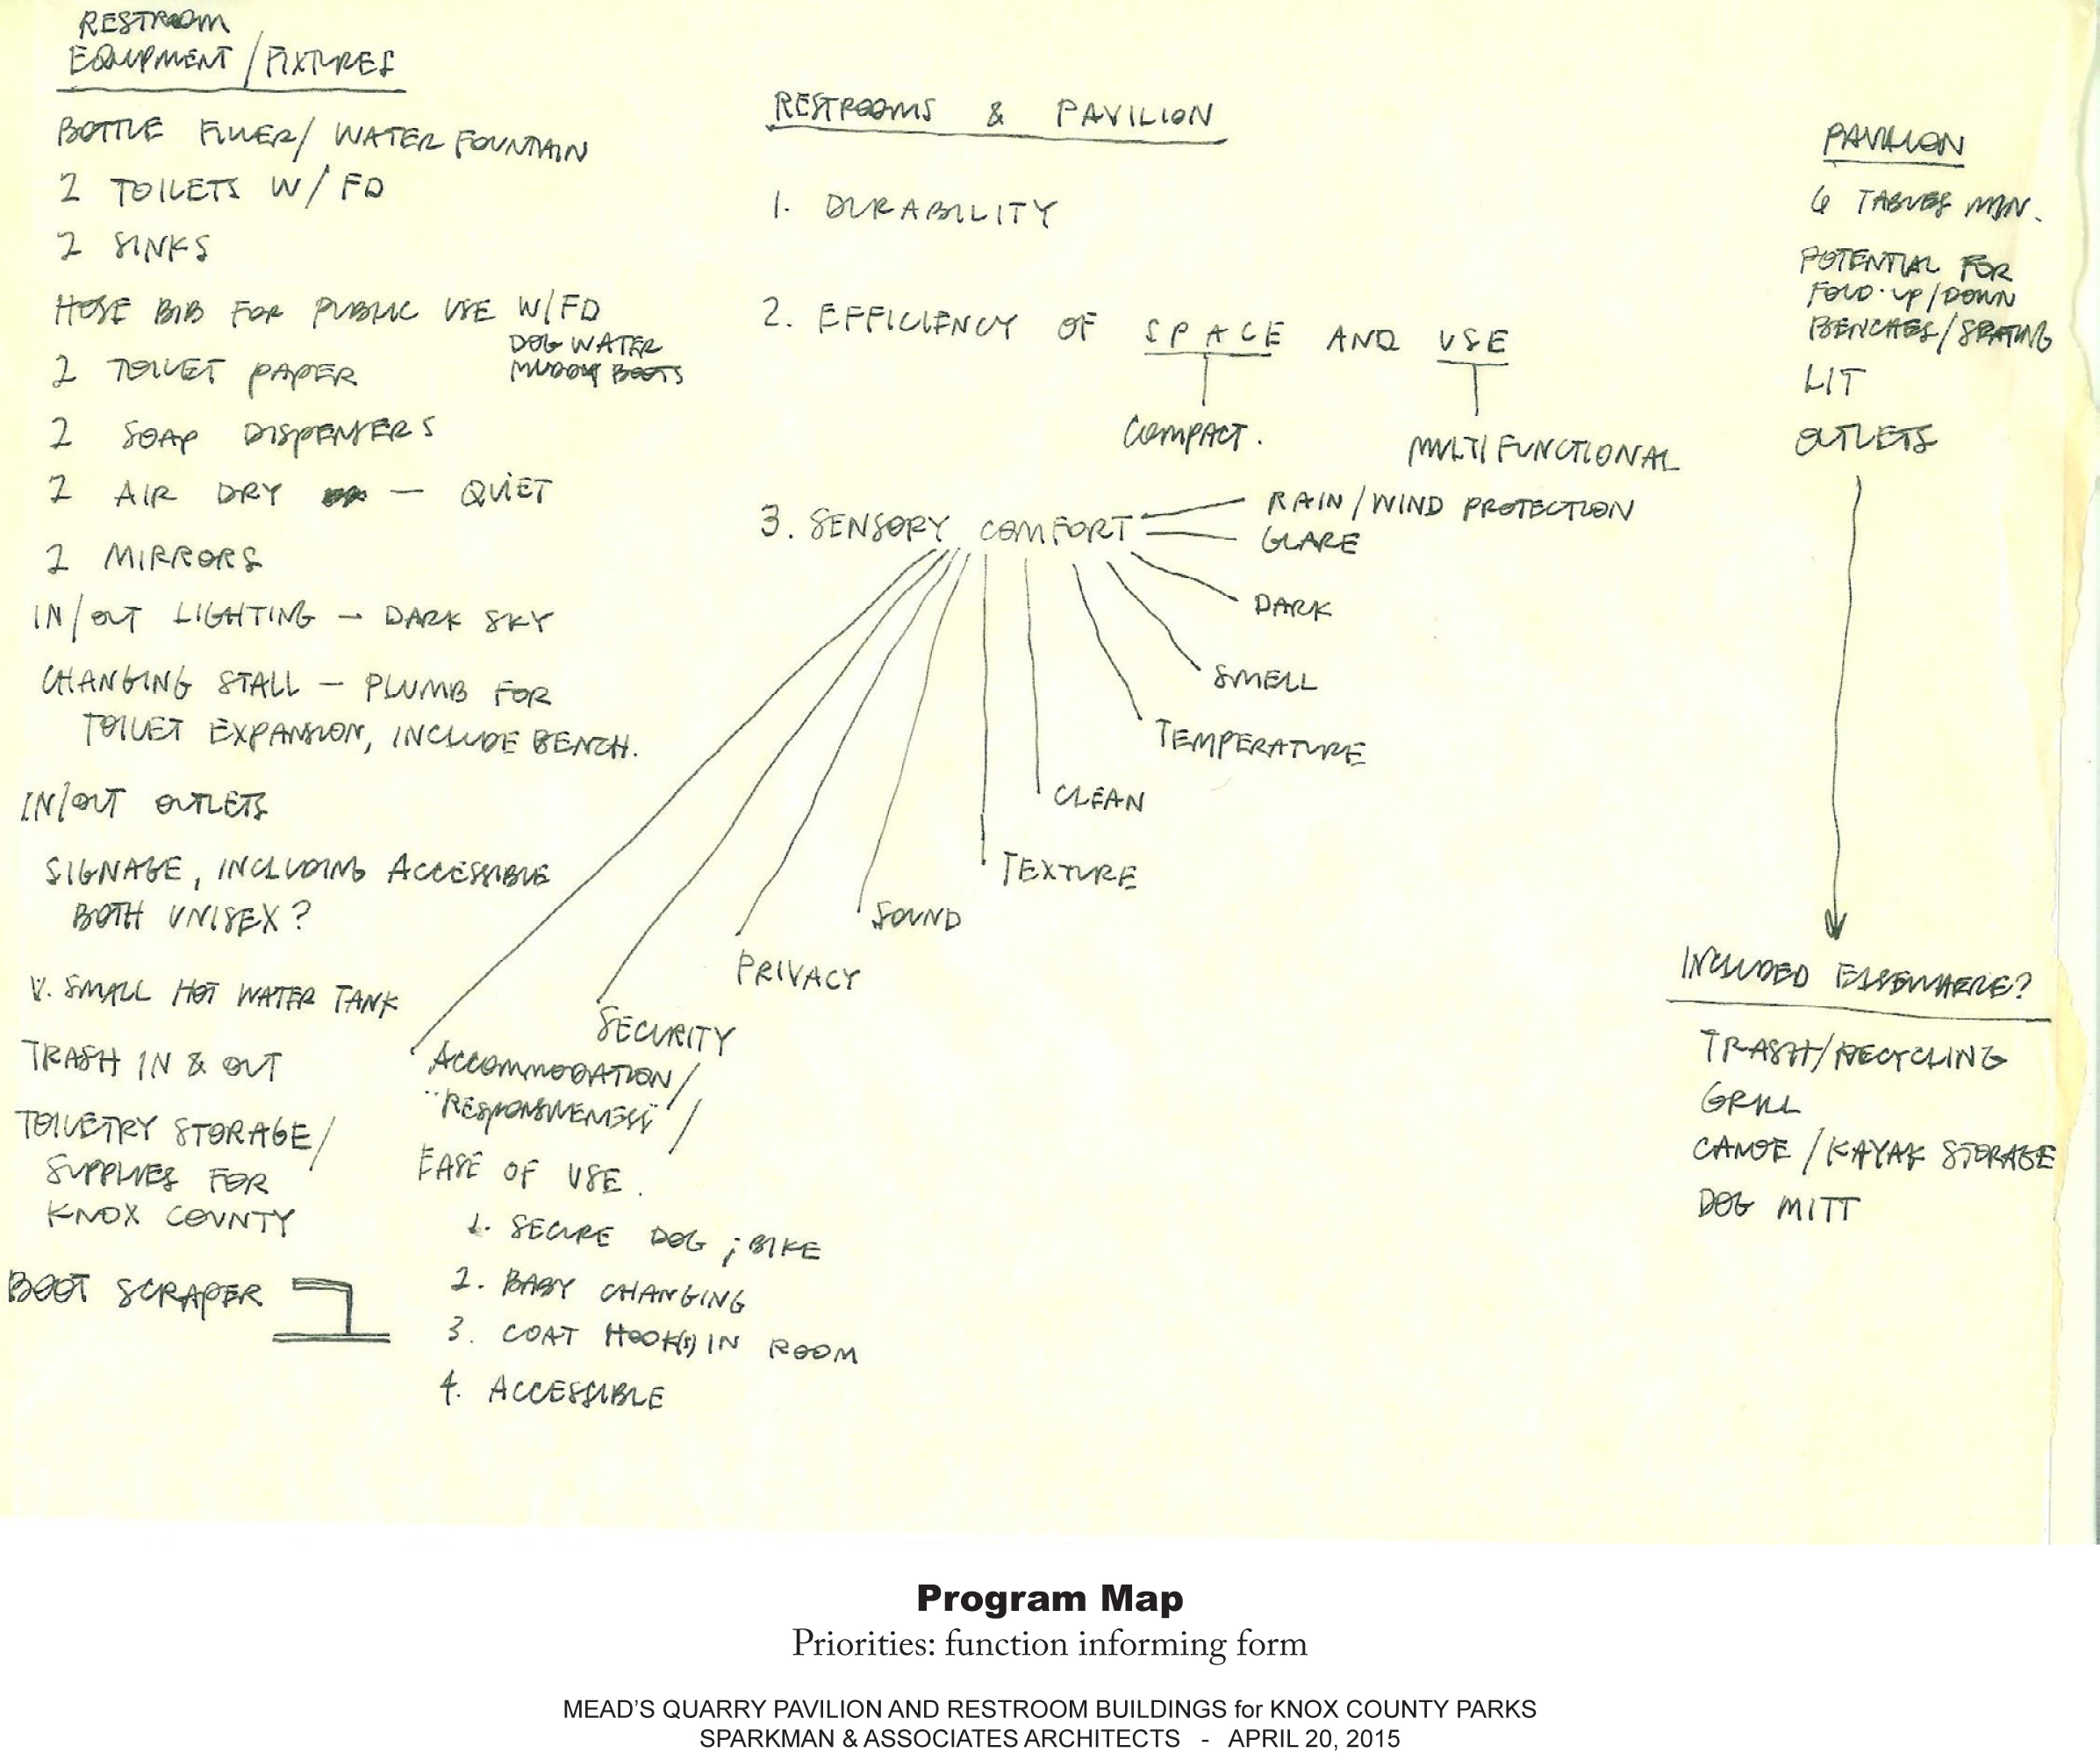 RESTROOM
EQUIPMENT / FIXTURES
BOTTLE FILLER / WATER FOUNTAIN
2 TOILETS W/ FD
2 SINKS
HOSE BIB FOR PUBLIC USE W/FD
DOG WATER
MUDDY BOOTS
2 TOILET PAPER
2 SOAP DISPENSERS
2 AIR DRY — QUIET
2 MIRRORS
IN/OUT LIGHTING – DARK SKY
CHANGING STALL – PLUMB FOR
TOILET EXPANSION, INCLUDE BENCH.
IN/OUT OUTLETS
SIGNAGE, INCLUDING ACCESSIBLE
BOTH UNISEX?
V. SMALL HOT WATER TANK
TRASH IN & OUT
TOILETRY STORAGE/
SUPPLIES FOR
KNOX COUNTY
BOOT SCRAPER
RESTROOMS & PAVILION
1. DURABILITY
2. EFFICIENCY OF SPACE AND USE
COMPACT.
MULTIFUNCTIONAL
3. SENSORY COMFORT
RAIN/WIND PROTECTION
GLARE
DARK
SMELL
TEMPERATURE
CLEAN
TEXTURE
SOUND
PRIVACY
SECURITY
ACCOMMODATION/
"RESPONSIVENESS"/
EASE OF USE.
1. SECURE DOG ; BIKE
2. BABY CHANGING
3. COAT HOOK(S) IN ROOM
4. ACCESSIBLE
PAVILION
6 TABLES MIN.
POTENTIAL FOR
FOLD-UP/DOWN
BENCHES/SEATING
LIT
OUTLETS
INCLUDED ELSEWHERE?
TRASH/RECYCLING
GRILL
CANOE/KAYAK STORAGE
DOG MITT
Program Map
Priorities: function informing form
MEAD'S QUARRY PAVILION AND RESTROOM BUILDINGS for KNOX COUNTY PARKS
SPARKMAN & ASSOCIATES ARCHITECTS - APRIL 20, 2015